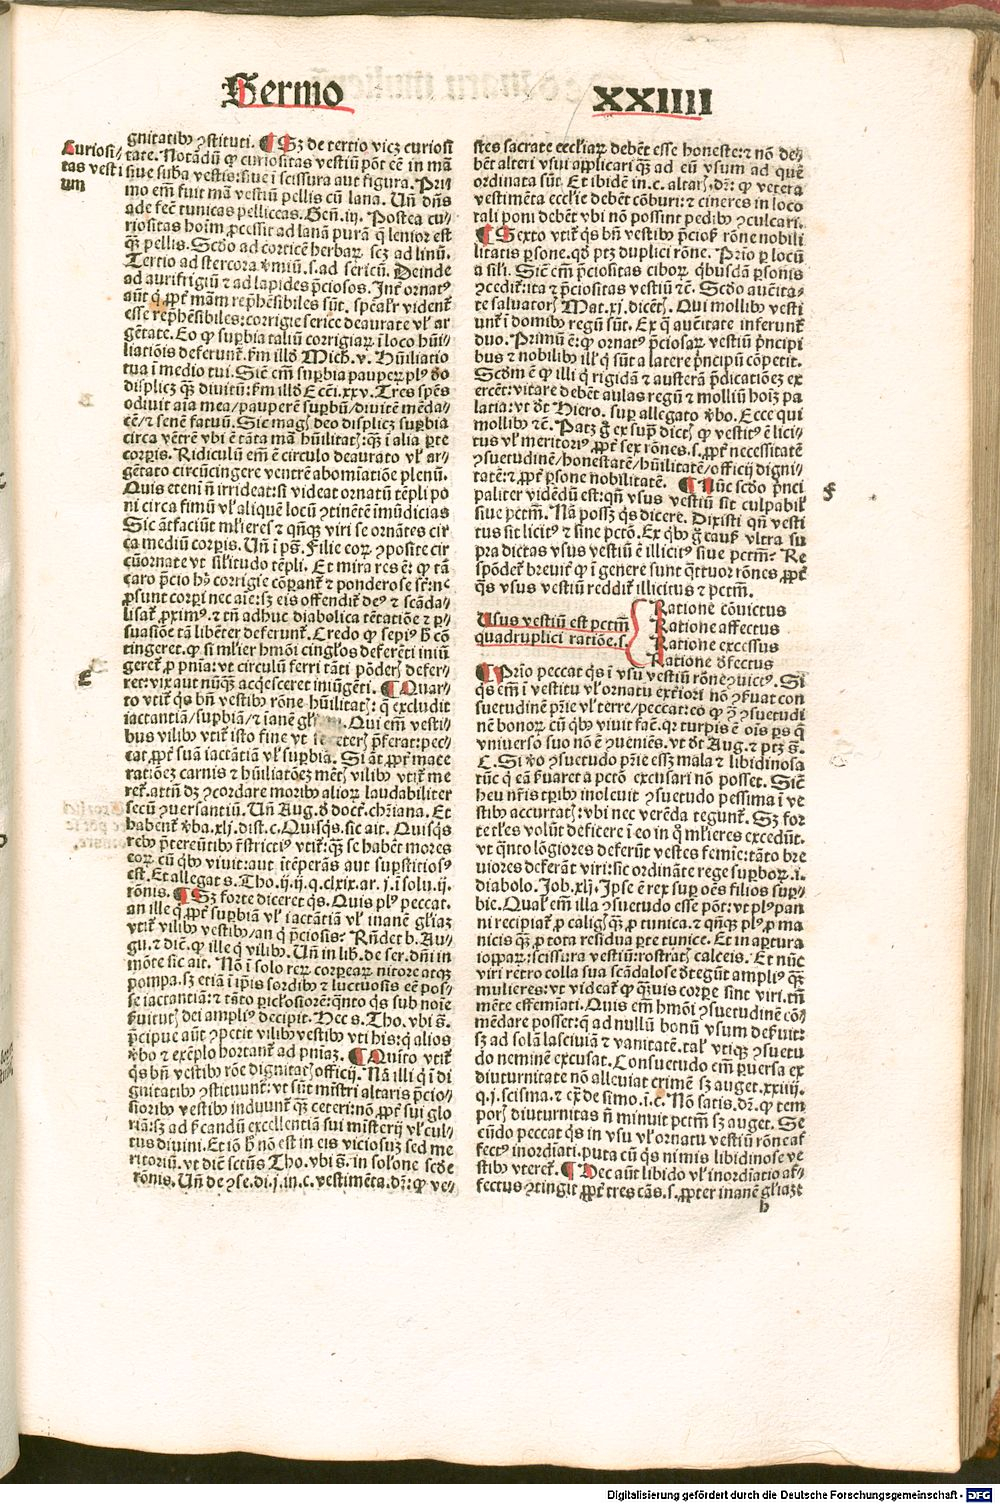 Sermo
XXIIII
Curiosi-
tas vesti
um
gnitatibꝰ ꝯstituti. ¶ Sꝫ de tertio vicꝫ curiosi
tate. Notādū ꝙ curiositas vestiū pōt eē in mā
siue suba vestis: siue ī scissura aut figura. Pri
mo em̄ fuit mā vestiū pellis cū lana. Un̄ dn̄s
ade fecē tunicas pelliceas. Gen̄. iij. Postea cu-
riositas hoīm ꝓcessit ad lanā purā ꝙ lenior est
qꝫ pellis. Scd̄o ad corticē herbaꝝ scꝫ ad linū.
Tertio ad stercora v̓miū. s. ad sericū. Deinde
ad aurifrigiū ⁊ ad lapides p̄ciosos. Int̓ ornatꝰ
aūt q̄ ꝓpt̓ mām rep̄hēsibiles sūt. spēalr̄ vident̓
esse rep̄hēsibiles: corrigie serice deaurate vl̓ ar
gētate. Eo ꝙ suꝑbia taliū corrigiaꝝ ī loco hūi-
liatiōis deferunt̓. ẜm illd̓ Mich̓. v. Hūiliatio
tua ī medio tui. Sic em̄ suꝑbia pauperꝝ plꝰ d̓o
displicꝫ qꝫ diuitū: ẜm illd̓ Ecc̄i. xxv. Tres spēs
odiuit aīa mea/pauperē suꝑbū/diuitē mēda-
cē/⁊ senē fatuū. Sic magꝭ deo displicꝫ suꝑbia
circa vētrē vbi ē tāta mā hūilitatꝭ: qꝫ ī alia ꝑte
corꝑis. Ridiculū em̄ ē circulo deaurato vl̓ ar-
gētato circūcingere ventrē abomiatiōe plenū.
Quis etenī n̄ irrideat: si videat ornatū tēpli po
ni circa fimū vl̓ aliquē locū ꝯtinētē imūdicias
Sic āt faciūt ml̓ieres ⁊ qn̄qꝫ viri se ornātes cir
ca mediū corꝑis. Un̄ ī ps̄. Filie eoꝝ ꝯposite cir
cūornate vt sil̓itudo tēpli. Et mira res ē: ꝙ tā
caro p̄cio hꝰ corrigie cōꝑant̓ ⁊ ponderose st̄: nc̄
ꝓsunt corꝑi nec aīe: sꝫ eis offendit̓ deꝰ ⁊ scāda-
lisat̓ ꝓximꝰ ⁊ tn̄ adhuc diabolica tētatiōe ⁊ ꝑ-
suasiōe tā libēter deferunt̓. Credo ꝙ sepiꝰ h̓ cō
tingeret. ꝙ si ml̓ier hmōi cingl̓os deferēti iniū
geret̓ ꝓ pn̄ia: vt circulū ferri tāti pōderꝭ defer-
ret: vix aut nūqꝫ acq̓esceret iniūgēti. ¶ Quar-
to vtit̓ qs̄ bn̄ vestibꝰ rōne hūilitatꝭ: q̄ excludit
iactantiā/suꝑbiā/⁊ inanē gl̓iam. Qui em̄ vesti-
bus vilibꝰ vtit̓ isto fine vt se ceterꝭ p̄ferat: pec-
cat ꝓpt̓ suā iactātiā vl̓ suꝑbia. Si āt ꝓpt̓ mace
ratiōeꝫ carnis ⁊ hūiliatōeꝫ mētꝭ vilibꝰ vtit̓ me
ret̓. attn̄ dꝫ ꝯcordare moribꝰ alioꝝ laudabiliter
secū ꝯuersantiū. Un̄ Aug. d̓ doct̓. chr̄iana. Et
habent̓ v̓ba. xlj. dist. c. Quisqs̄. sic ait. Quisqs̄
rebꝰ p̄tereūtibꝰ ꝯstrictiꝰ vtit̓: qꝫ se habēt mores
eoꝝ cū qbꝰ viuit: aut ītēperās aut suꝑstitiosꝰ
est. Et allegat s. Tho. ij. ij. q. clxix. ar. j. ī solu. ij.
rōnis. ¶ Sꝫ forte diceret qs̄. Quis plꝰ peccat.
an ille q̄ ꝓpt̓ suꝑbiā vl̓ iactātiā vl̓ inanē gl̓iaꝫ
vtit̓ vilibꝰ vestibꝰ/an q̄ p̄ciosis? Rn̄det b. Au-
gu. ⁊ diē. ꝙ ille q̄ vilibꝰ. Un̄ in lib. de ser. dn̄i in
mōte sic ait. Nō ī solo reꝝ corꝑearꝝ nitore atqꝫ
pompa. sꝫ etiā ī ip̄is sordibꝰ ⁊ luctuosis eē pos-
se iactantiā: ⁊ tāto ꝑicl̓osiorē: q̄nto qs̄ sub noīe
ẜuitutꝭ dei ampliꝰ decipit. Hec s. Tho. vbi s̄.
p̄cipue aūt ꝯpetit vilibꝰ vestibꝰ vti his: q̄ alios
v̓bo ⁊ exēplo hortant̓ ad pn̄iaꝫ. ¶ Quīto vtit̓
qs̄ bn̄ vestibꝰ rōe dignitatꝭ officij. Nā illi q̄ ī di
gnitatibꝰ ꝯstituunt̓: vt sūt mīstri altaris p̄cio-
sioribꝰ vestibꝰ induunt̓ qꝫ ceteri: nō ꝓpt̓ sui glo
riā: sꝫ ad ẜ̓candū excellentiā sui misterij vl̓ cul-
tus diuini. Et iō h̓ nō est in eis viciosuꝫ sed me
ritoriū. vt diē sctūs Tho. vbi s̄. in sol̓one scd̄e
rōnis. Un̄ de ꝯse. di. j. in. c. vestimēta. dr̄: ꝙ ve-
stes sacrate eccl̓iaꝝ debēt esse honeste: ⁊ nō de-
bēt alteri vsui applicari qꝫ ad eū vsum ad quē
ordinata sūt. Et ibidē in. c. altarꝭ. dr̄: ꝙ vetera
vestimēta eccl̓ie debēt cōburi: ⁊ cineres in loco
tali poni debēt vbi nō possint pedibꝰ ꝯculcari.
¶ Sexto vtit̓ qs̄ bn̄ vestibꝰ p̄ciosꝭ rōne nobili
litatis ꝑsone. qd̓ ptꝫ duplici rōne. Prīo ꝑ locū
a sil̓i. Sic em̄ p̄ciositas ciboꝝ qbusdā ꝑsonis
ꝯcedit̓: ita ⁊ p̄ciositas vestiū ⁊c̄. Scd̄o auc̄ita-
te saluatorꝭ Mat. xj. dicētꝭ. Qui mollibꝰ vesti
unt̓ ī domibꝰ regū sūt. Ex q̄ auc̄itate inferunt̓
duo. Primū ē: ꝙ ornatꝰ p̄ciosaꝝ vestiū p̄ncipi
bus ⁊ nobilibꝰ ill̓ q̄ sūt a latere p̄ncipū cōpetit.
Scd̄m ē ꝙ illi q̄ rigidā ⁊ austerā p̄dicatiōeꝫ ex
ercēt: vitare debēt aulas regū ⁊ molliū hoīꝫ pa
latia: vt d̓t Hiero. suꝑ allegato v̓bo. Ecce qui
mollibꝰ ⁊c̄. Patꝫ g̊ ex sup̄ dictꝭ ꝙ vestitꝰ ē lici-
tus vl̓ meritoriꝰ ꝓpt̓ sex rōnes. s. ꝓpt̓ necessitatē
ꝯsuetudinē/honestatē/hūilitatē/officij digni-
tatē: ⁊ ꝓpt̓ ꝑsone nobilitatē. ¶ Nūc scd̄o p̄nci
paliter vidēdū est: qn̄ vsus vestiū sit culpabil̓
siue pctm̄. Nā possꝫ qs̄ dicere. Dixisti qn̄ vesti
tus sit licitꝰ ⁊ sine pctō. Ex qbꝰ g̊ causꝭ vltra su
pra dictas vsus vestiū ē illicitꝰ siue pctm̄? Re
spōdet̓ breuit̓ ꝙ ī genere sunt q̄ttuor rōnes ꝓpt̓
qs̄ vsus vestiū reddit̓ illicitus ⁊ pctm̄.
Usus vestiū est pctm̄
quadruplici ratiōe. s.
Ratione cōuictus
Ratione affectus
Ratione excessus
Ratione d̓fectus
¶ Prīo peccat qs̄ ī vsu vestiū rōne ꝯuictꝰ. Si
qs̄ em̄ ī vestitu vl̓ ornatu ext̓iori nō ẜuat con
suetudinē pr̄ie vl̓ terre/peccat: eo ꝙ ꝯ̄ ꝯsuetudi
nē bonoꝝ cū qbꝰ viuit fac̄. qr̄ turpis ē oīs ꝑs q̄
vniuerso suo nō ē ꝯueniēs. vt d̓t Aug. ⁊ ptꝫ s̄.
C. Si v̓o ꝯsuetudo pr̄ie essꝫ mala ⁊ libidinosa
tūc q̄ eā ẜuaret a pctō excusari nō posset. Sic̄
heu nr̄is tꝑibꝰ inoleuit ꝯsuetudo pessima ī ve
stibꝰ accurtatꝭ: vbi nec verēda tegunt̓. Sꝫ for
te tl̓es volūt deficere ī eo in q̄ ml̓ieres excedūt.
vt q̄nto lōgiores deferūt vestes femīe: tāto bre
uiores deferāt viri: sic ordināte rege suꝑboꝝ. i.
diabolo. Job. xlj. Ip̄e ē rex suꝑ oēs filios suꝑ-
bie. Qual̓ em̄ illa ꝯsuetudo esse pōt: vt plꝰ pan
ni recipiat̓ ꝓ caligꝭ qꝫ ꝓ tunica. ⁊ qn̄qꝫ plꝰ ꝓ ma
nicis qꝫ ꝓ tota residua ꝑte tunice. Et in aꝑtura
iopꝑaꝝ: scissura vestiū: rostratꝭ calceis. Et nūc
viri retro colla sua scādalose d̓tegūt ampliꝰ qꝫ
mulieres: vt videat̓ ꝙ qꝫuis corꝑe sint viri. tn̄
mēte effemīati. Quis em̄ hmōi ꝯsuetudinē cō-
mēdare posset: q̄ ad nullū bonū vsum deẜuit:
sꝫ ad solā lasciuiā ⁊ vanitatē. tal̓ vtiqꝫ ꝯsuetu
do neminē excusat. Consuetudo em̄ ꝑuersa ex
diuturnitate nō alleuiat crimē sꝫ auget. xxiiij.
q. j. scisma. ⁊ ex̄ de simo. ī. c. Nō satis. dr̄. ꝙ tem
porꝭ diuturnitas n̄ minuit pctm̄ sꝫ auget. Se
cūdo peccat qs̄ in vsu vl̓ ornatu vestiū rōne af
fectꝰ inordīati. puta cū qs̄ nimis libidinose ve
stibꝰ vteret̓. ¶ Hec aūt libido vl̓ inordīatio af-
fectus ꝯtingit ꝓpt̓ tres cās. s. ꝓpter inanē gl̓iaꝫ
h
Digitalisierung gefördert durch die Deutsche Forschungsgemeinschaft - DFG